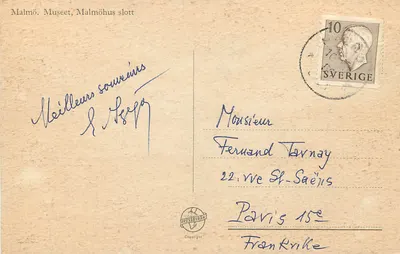 Malmö. Museet, Malmöhus slott
10
SVERIGE
Meilleurs souvenirs
Monsieur
Fernand Tavnay
22. rue St-Saëns
Paris 15e
Frankrike